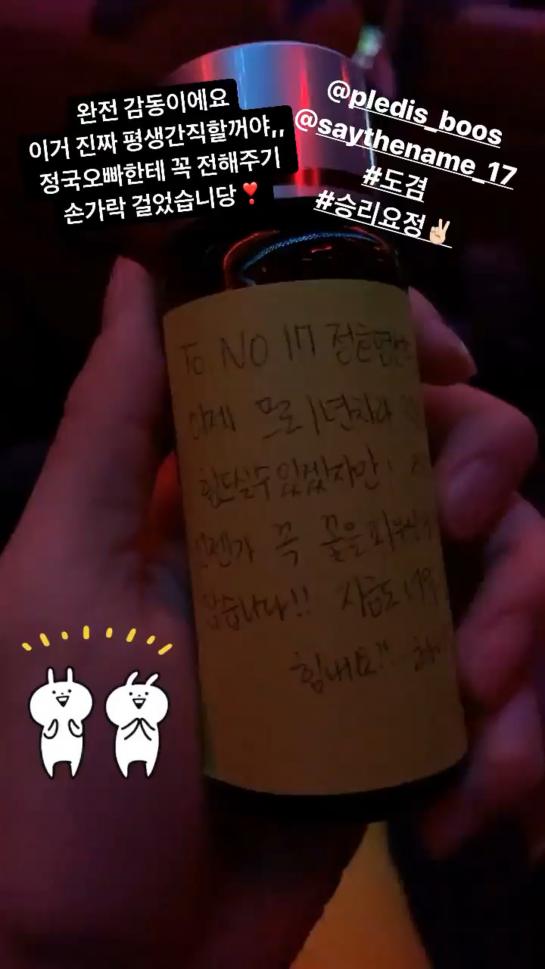 완전 감동이에요
이거 진짜 평생간직할꺼야,,
정국오빠한테 꼭 전해주기
손가락 걸었습니당❣️
@pledis_boos
@saythename_17
#도겸
#승리요정✌🏻
To. NO 17
이제 프로 1년차라
힘드실수 있겠지만!
언젠가 꼭 꽃을 피우실
같습니다!! 지금도
힘내요!!